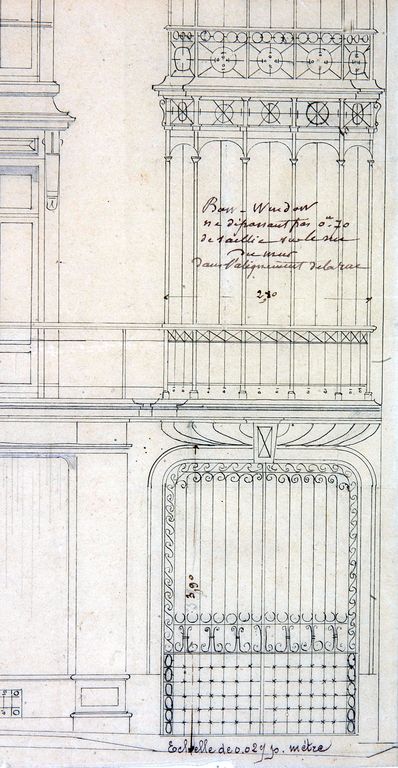 Bow-Window
ne dépassant pas 0m70
de saillie sur le nu
du mur
dans l'alignement de la rue
2,80
3,90
Echelle de 0.02 p. mètre